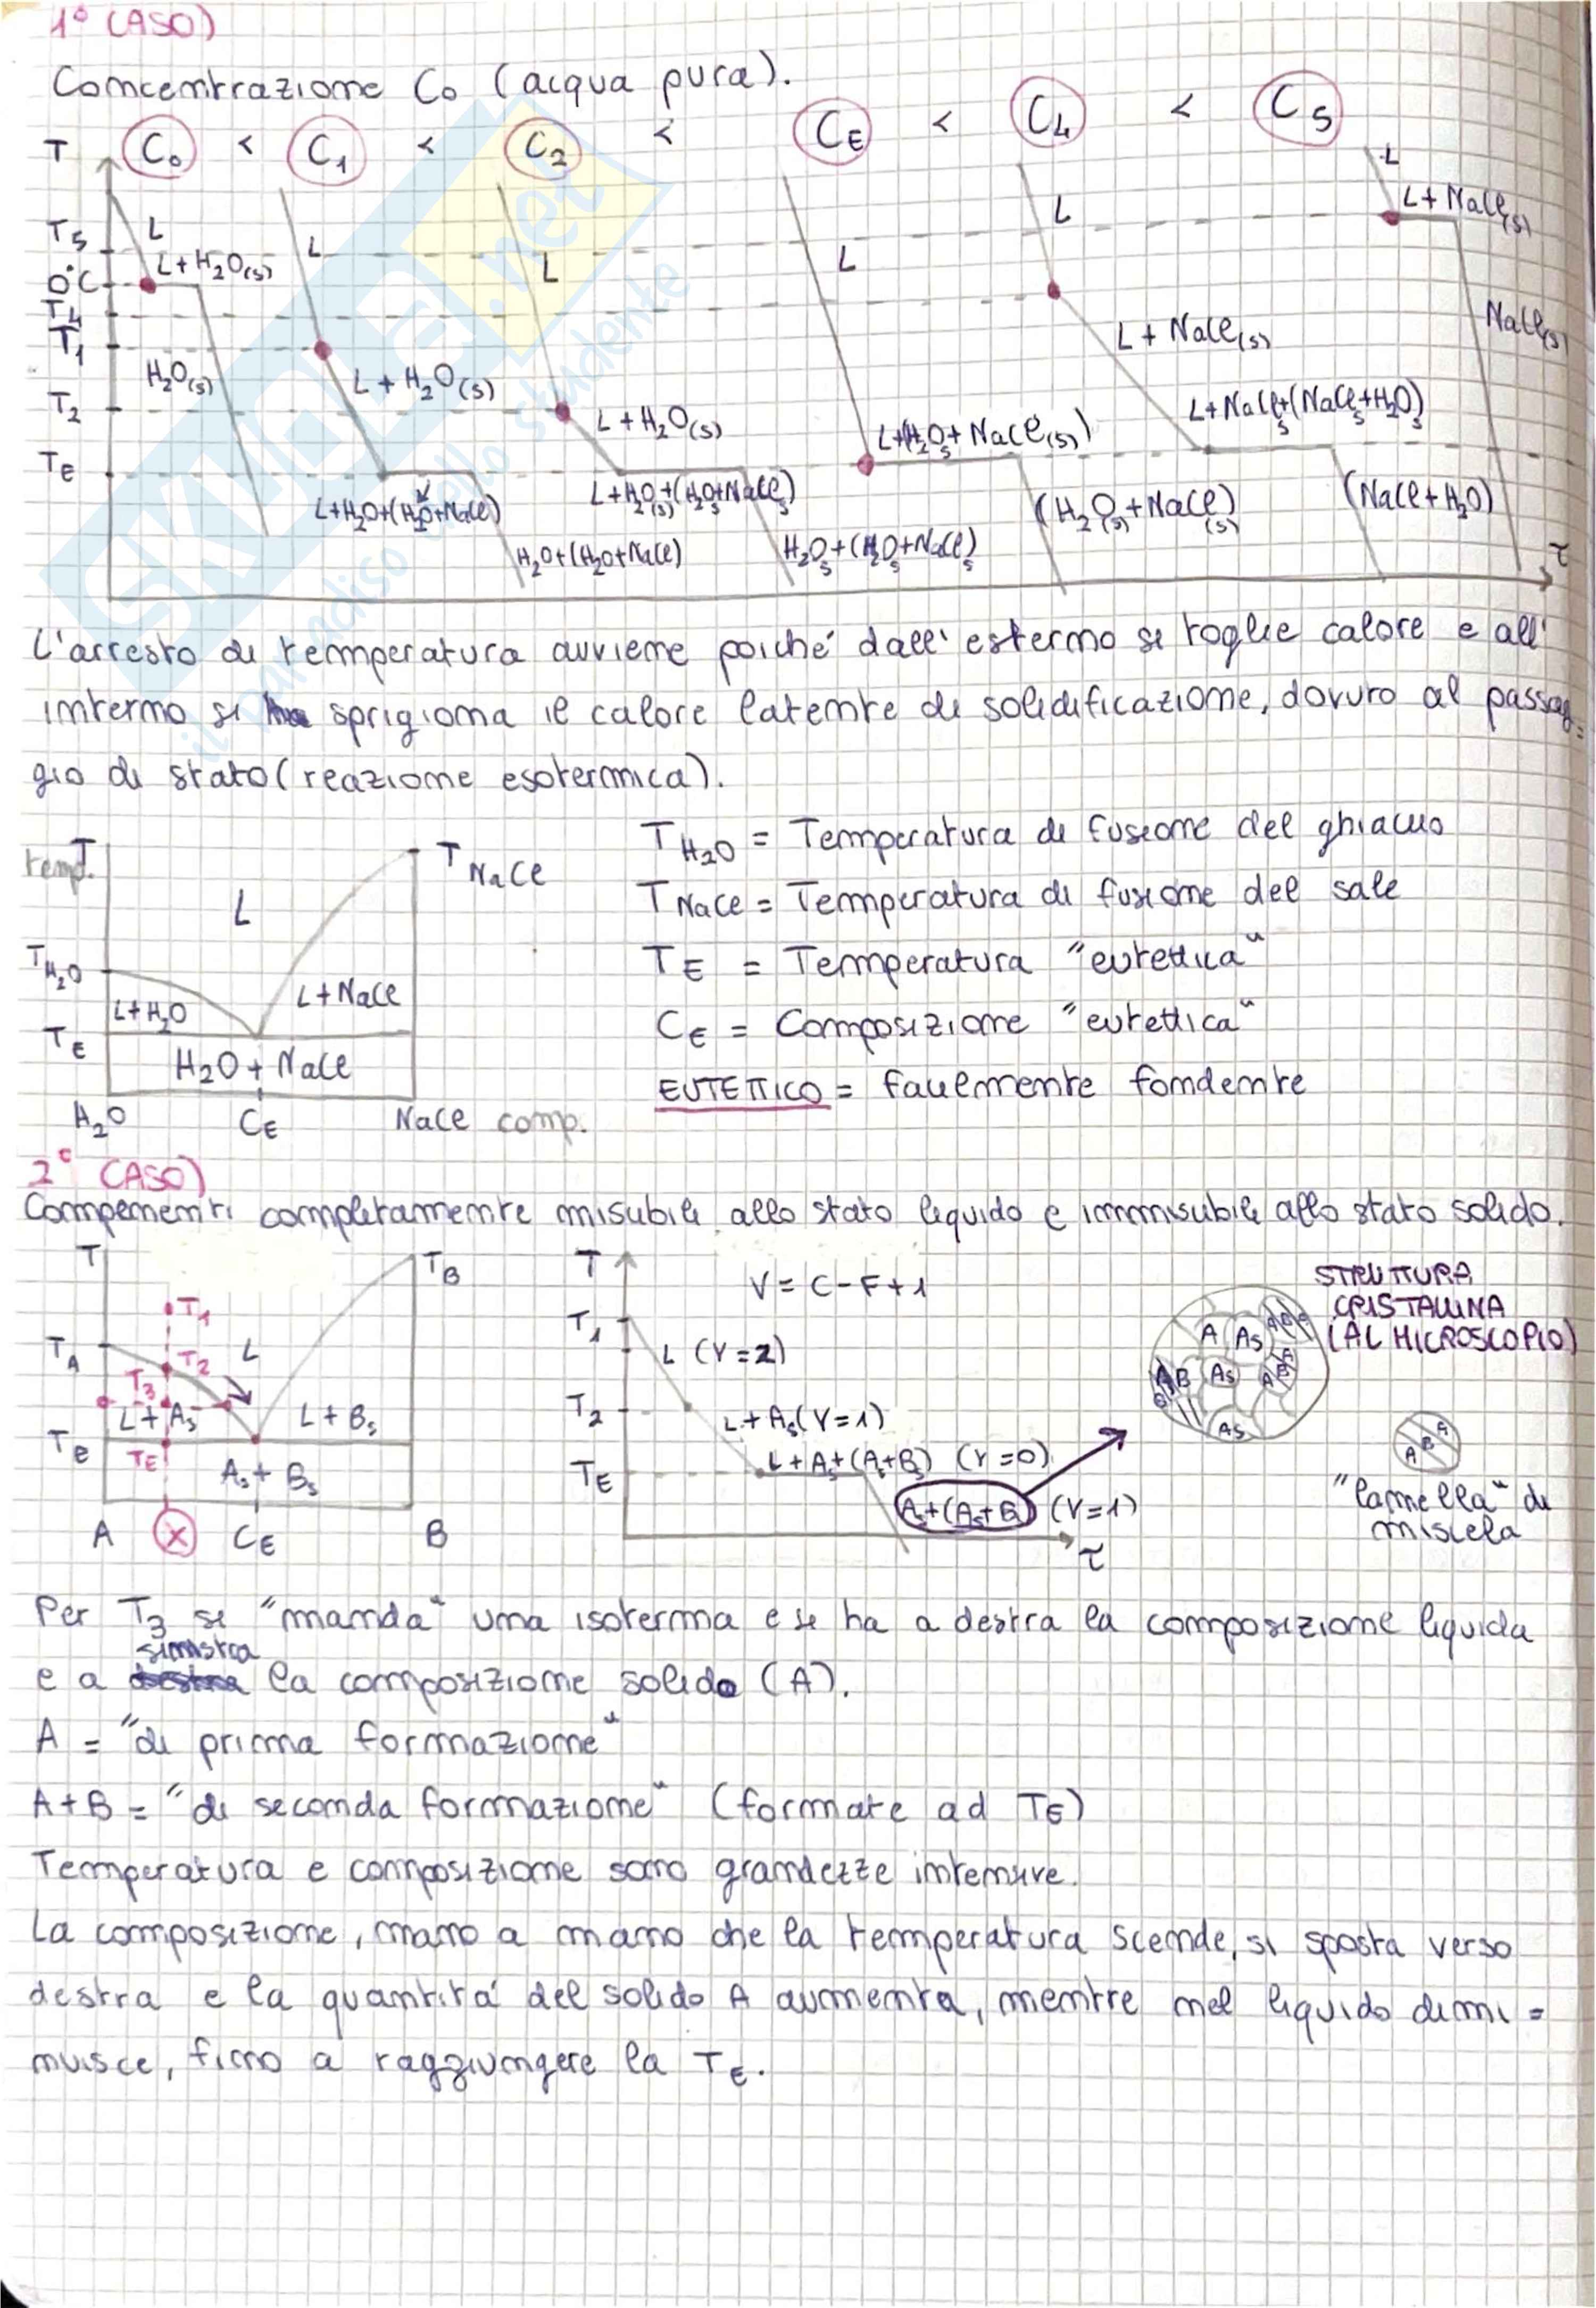 1° CASO)
Concentrazione C₀ (acqua pura).
T C₀ < C₁ < C₂ < C_E < C₄ < C₅
L
T₅ L L L+NaCl(s)
0°C L+H₂O(s) L L L
T₄
T₁ L+NaCl(s) NaCl(s)
H₂O(s) L+H₂O(s)
T₂ L+H₂O(s) L+NaClₛ+(NaClₛ+H₂Oₛ)
T_E L+(H₂Oₛ+NaCl(s))
L+H₂O+(H₂O+NaCl) L+H₂O(s)+(H₂Oₛ+NaClₛ) (H₂O(s)+NaCl(s)) (NaCl+H₂O)
H₂O+(H₂O+NaCl) H₂Oₛ+(H₂Oₛ+NaCl)ₛ τ
L'arresto di temperatura avviene poiché dall'esterno si toglie calore e all'
interno si sprigiona il calore latente di solidificazione, dovuto al passag=
gio di stato (reazione esotermica).
T
temp.
T_NaCl
L
T_H₂O
L+H₂O L+NaCl
T_E
H₂O+NaCl
H₂O C_E NaCl comp.
T_H₂O = Temperatura di fusione del ghiaccio
T_NaCl = Temperatura di fusione del sale
T_E = Temperatura "eutettica"
C_E = Composizione "eutettica"
EUTETTICO = facilmente fondente
2° CASO)
Componenti completamente miscibili allo stato liquido e immiscibili allo stato solido.
T T_B
T₁
T_A T₂ L
T₃
L+Aₛ L+Bₛ
T_E
T_E Aₛ+Bₛ
A X C_E B
T V=C-F+1
T₁
L (V=2)
T₂
L+Aₛ (V=1)
L+Aₛ+(Aₛ+Bₛ) (V=0)
T_E
Aₛ+(Aₛ+Bₛ) (V=1)
τ
STRUTTURA
CRISTALLINA
(AL MICROSCOPIO)
A Aₛ A B
A B Aₛ A B A
Aₛ
A B A
"lamella" di
miscela
Per T₃ si "manda" una isoterma e si ha a destra la composizione liquida
e a sinistra la composizione solido (A).
A = "di prima formazione"
A+B = "di seconda formazione" (formate ad T_E)
Temperatura e composizione sono grandezze intensive.
La composizione, mano a mano che la temperatura scende, si sposta verso
destra e la quantità del solido A aumenta, mentre nel liquido dimi=
nuisce, fino a raggiungere la T_E.
SKUOLA.net
il paradiso dello studente